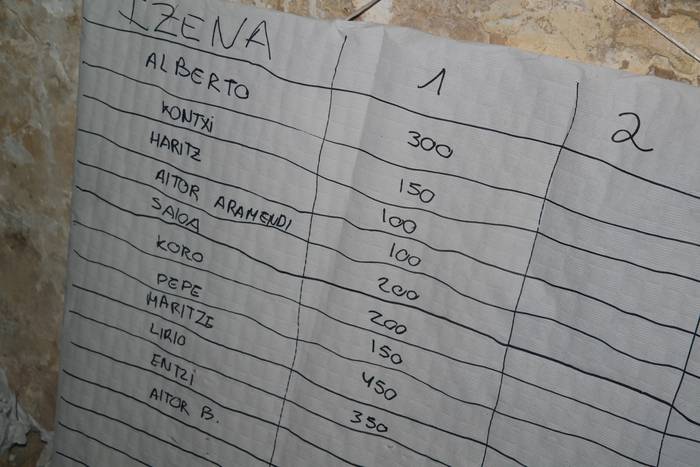 IZENA 1 2
ALBERTO 300
KONTXI 150
HARITZ 100
AITOR ARAMENDI 100
SAIOA 200
KORO 200
PEPE 150
MARITZE 450
LIRIO 350
ENTZI
AITOR B.